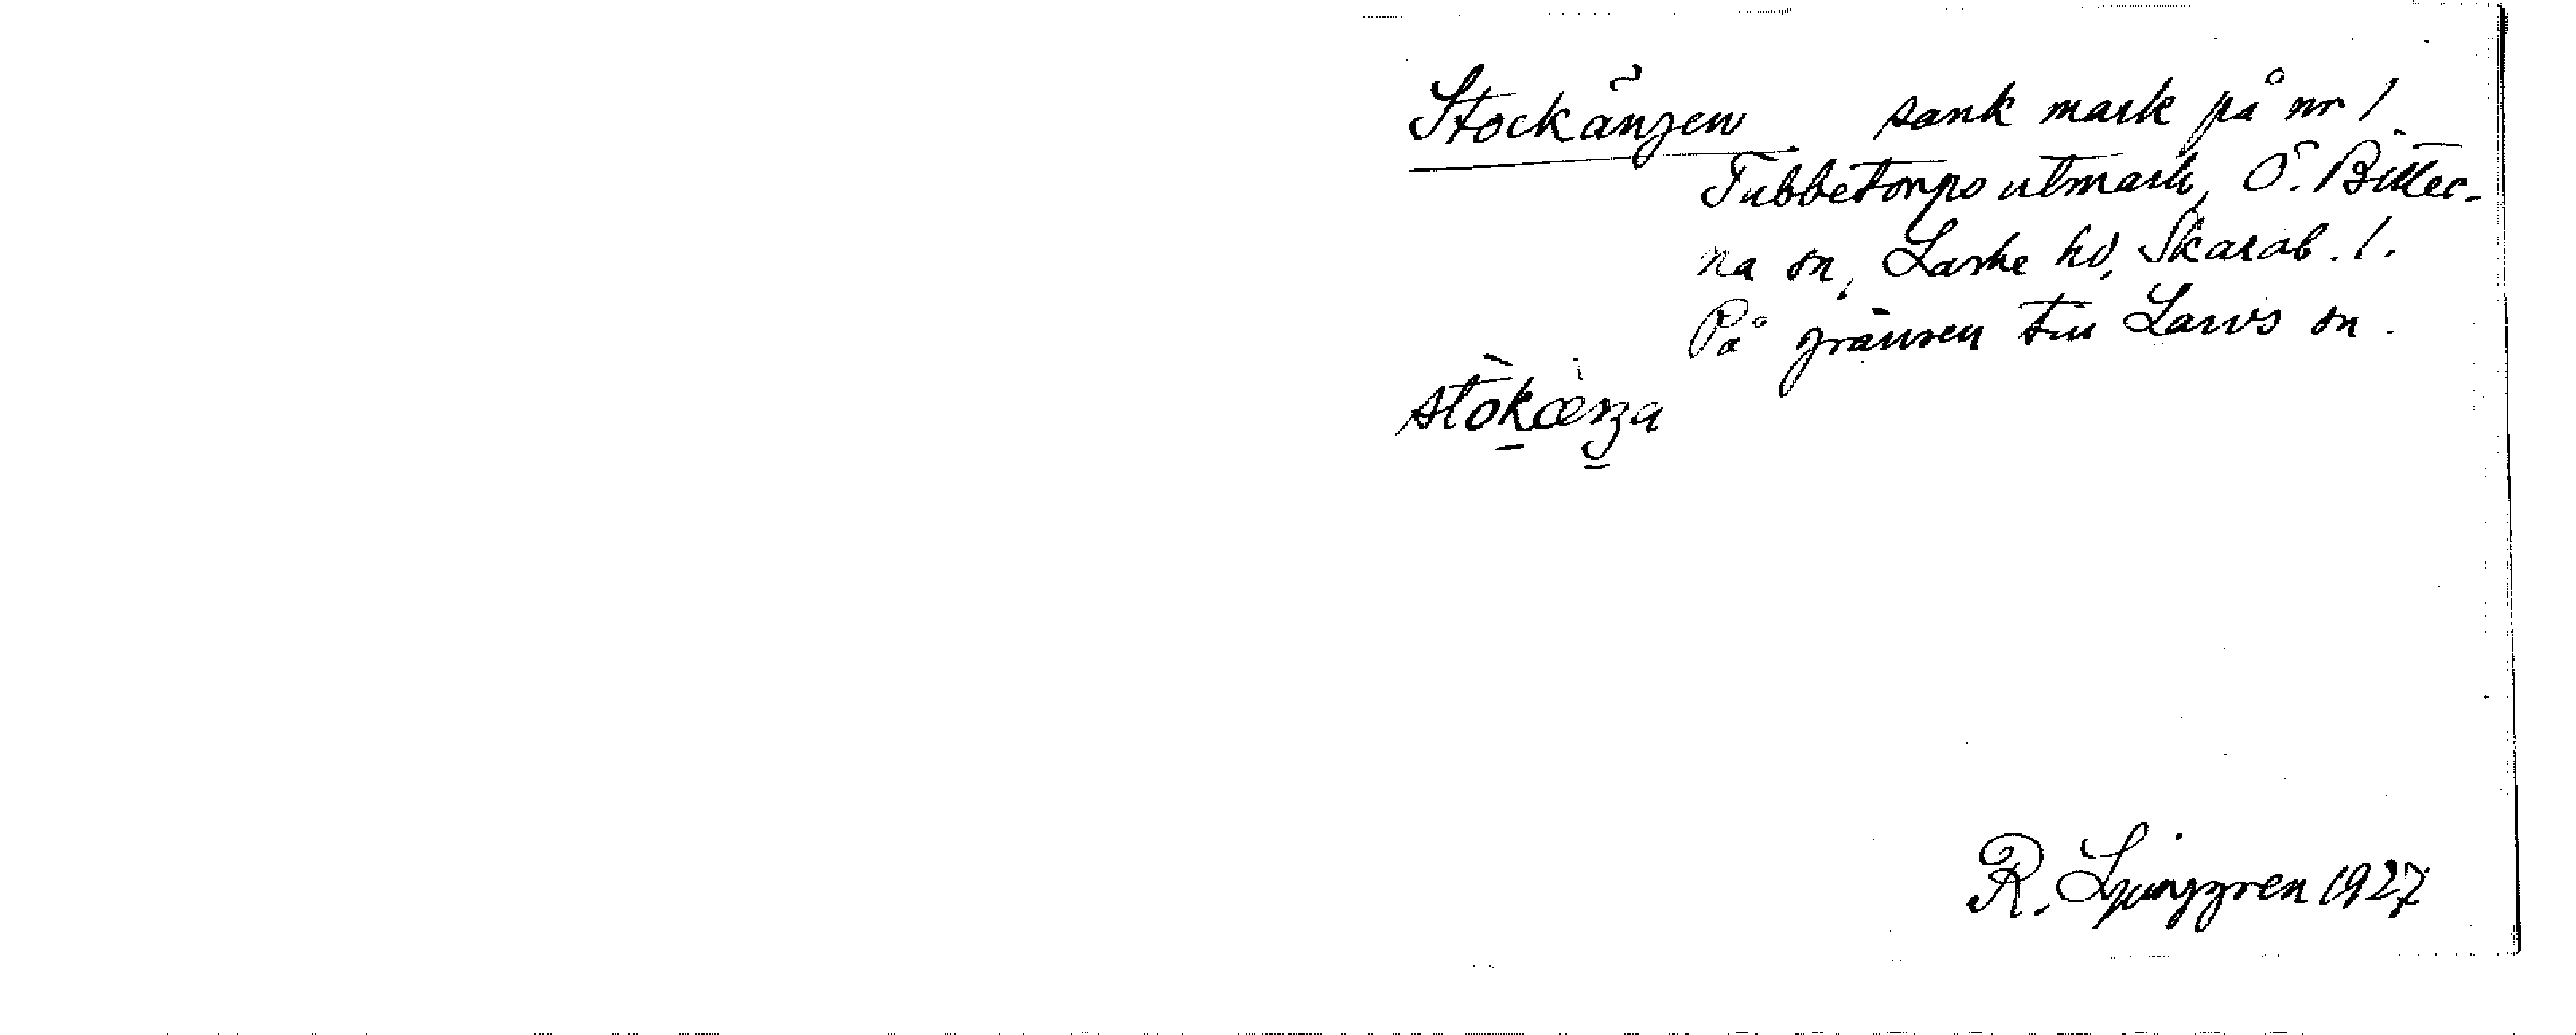 Stockängen sank mark på nr 1
Tubbetorps utmark, Ö. Bitter-
na sn, Laske hd, Skarab. l.
På gränsen till Larvs sn.
stòkæ̀ŋa
R. Ljunggren 1927